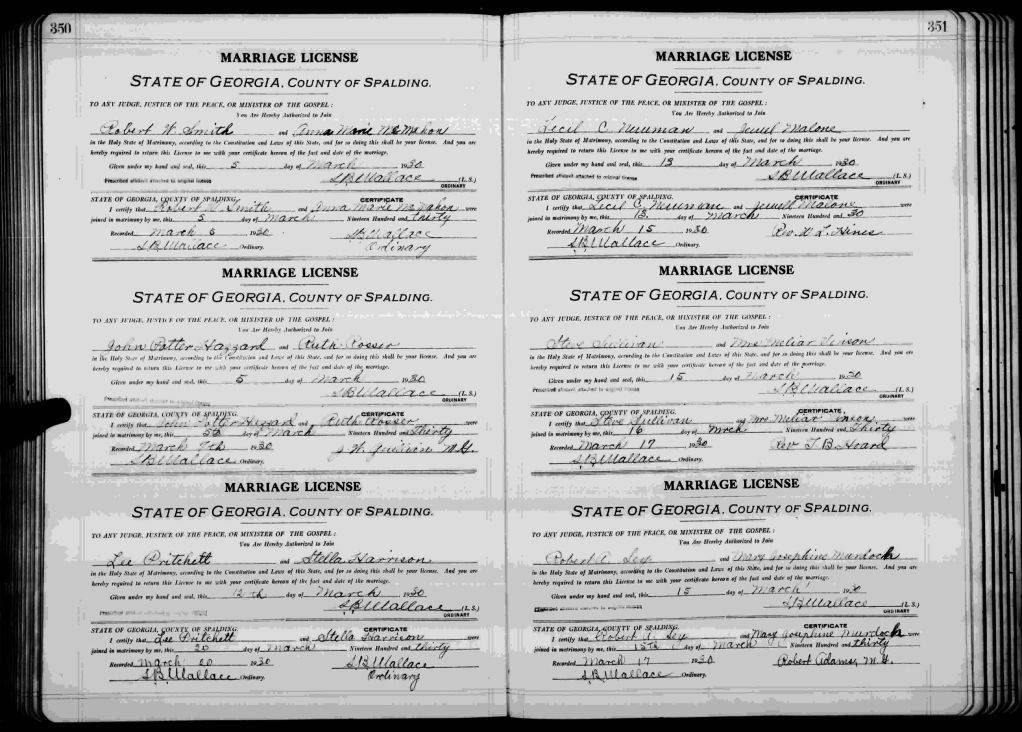 350
MARRIAGE LICENSE
STATE OF GEORGIA, COUNTY OF SPALDING.
TO ANY JUDGE, JUSTICE OF THE PEACE, OR MINISTER OF THE GOSPEL:
You Are Hereby Authorized to Join
Robert W. Smith and Anna Marie McMahon
in the Holy State of Matrimony, according to the Constitution and Laws of this State, and for so doing this shall be your license. And you are
hereby required to return this License to me with your certificate hereon of the fact and date of the marriage.
Given under my hand and seal, this 5 day of March 1930
Prescribed affidavit attached to original license S.B. Wallace (L. S.)
ORDINARY
STATE OF GEORGIA, COUNTY OF SPALDING. CERTIFICATE
I certify that Robert W. Smith and Anna Marie McMahon were
joined in matrimony by me, this 5 day of March Nineteen Hundred and thirty
Recorded March 5 1930 S.B. Wallace
S.B. Wallace Ordinary. Ordinary
MARRIAGE LICENSE
STATE OF GEORGIA, COUNTY OF SPALDING.
TO ANY JUDGE, JUSTICE OF THE PEACE, OR MINISTER OF THE GOSPEL:
You Are Hereby Authorized to Join
John Potter Hazzard and Ruth Rosser
in the Holy State of Matrimony, according to the Constitution and Laws of this State, and for so doing this shall be your license. And you are
hereby required to return this License to me with your certificate hereon of the fact and date of the marriage.
Given under my hand and seal, this 5 day of March 1930
Prescribed affidavit attached to original license S.B. Wallace (L. S.)
ORDINARY
STATE OF GEORGIA, COUNTY OF SPALDING. CERTIFICATE
I certify that John Potter and Ruth Rosser were
joined in matrimony by me, this day of March Nineteen Hundred and thirty
Recorded March 7th 1930 M.G.
S.B. Wallace Ordinary.
MARRIAGE LICENSE
STATE OF GEORGIA, COUNTY OF SPALDING.
TO ANY JUDGE, JUSTICE OF THE PEACE, OR MINISTER OF THE GOSPEL:
You Are Hereby Authorized to Join
Lee Pritchett and Stella Harrison
in the Holy State of Matrimony, according to the Constitution and Laws of this State, and for so doing this shall be your license. And you are
hereby required to return this License to me with your certificate hereon of the fact and date of the marriage.
Given under my hand and seal, this 12th day of March 1930
Prescribed affidavit attached to original license S.B. Wallace (L. S.)
ORDINARY
STATE OF GEORGIA, COUNTY OF SPALDING. CERTIFICATE
I certify that Lee Pritchett and Stella Harrison were
joined in matrimony by me, this 20 day of March Nineteen Hundred and thirty
Recorded March 20 1930 S.B. Wallace
S.B. Wallace Ordinary. Ordinary
351
MARRIAGE LICENSE
STATE OF GEORGIA, COUNTY OF SPALDING.
TO ANY JUDGE, JUSTICE OF THE PEACE, OR MINISTER OF THE GOSPEL:
You Are Hereby Authorized to Join
Cecil C. Newman and Jewel Malone
in the Holy State of Matrimony, according to the Constitution and Laws of this State, and for so doing this shall be your license. And you are
hereby required to return this License to me with your certificate hereon of the fact and date of the marriage.
Given under my hand and seal, this 13 day of March 1930
Prescribed affidavit attached to original license S.B. Wallace (L. S.)
ORDINARY
STATE OF GEORGIA, COUNTY OF SPALDING. CERTIFICATE
I certify that Cecil C. Newman and Jewell Malone were
joined in matrimony by me, this 13 day of March Nineteen Hundred and 30
Recorded March 15 1930 Rev. H. L. Hines
S.B. Wallace Ordinary.
MARRIAGE LICENSE
STATE OF GEORGIA, COUNTY OF SPALDING.
TO ANY JUDGE, JUSTICE OF THE PEACE, OR MINISTER OF THE GOSPEL:
You Are Hereby Authorized to Join
Steve Sullivan and Mrs Meliar Vinson
in the Holy State of Matrimony, according to the Constitution and Laws of this State, and for so doing this shall be your license. And you are
hereby required to return this License to me with your certificate hereon of the fact and date of the marriage.
Given under my hand and seal, this 15 day of March 1930
Prescribed affidavit attached to original license S.B. Wallace (L. S.)
ORDINARY
STATE OF GEORGIA, COUNTY OF SPALDING. CERTIFICATE
I certify that Steve Sullivan and Mrs Meliar Vinson were
joined in matrimony by me, this 16 day of March Nineteen Hundred and Thirty
Recorded March 17 1930 Rev T. B. Heard
S.B. Wallace Ordinary.
MARRIAGE LICENSE
STATE OF GEORGIA, COUNTY OF SPALDING.
TO ANY JUDGE, JUSTICE OF THE PEACE, OR MINISTER OF THE GOSPEL:
You Are Hereby Authorized to Join
Robert A. and Mary Josephine Murdock
in the Holy State of Matrimony, according to the Constitution and Laws of this State, and for so doing this shall be your license. And you are
hereby required to return this License to me with your certificate hereon of the fact and date of the marriage.
Given under my hand and seal, this 15 day of March 1930
Prescribed affidavit attached to original license S.B. Wallace (L. S.)
ORDINARY
STATE OF GEORGIA, COUNTY OF SPALDING. CERTIFICATE
I certify that Robert A. and Mary Josephine Murdock were
joined in matrimony by me, this 15th day of March Nineteen Hundred and thirty
Recorded March 17 1930 Robert Adams, M.G.
S.B. Wallace Ordinary.